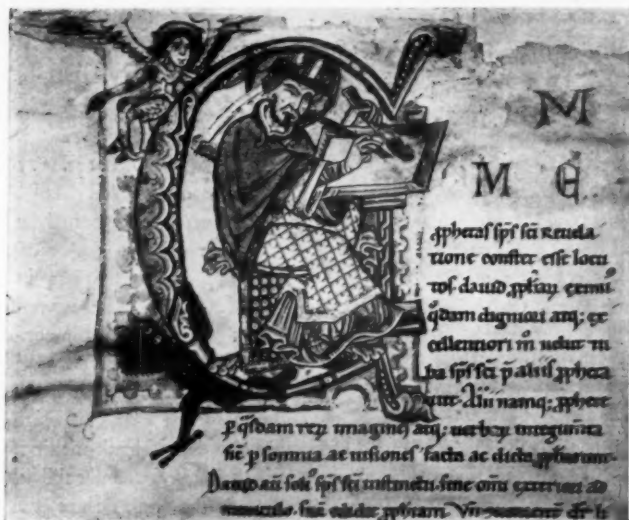 C
M
M E
ꝓphetas sp̄s sc̄i reuela
tione constet esse locu
tos. dauid ꝓphar̄ eximi᷒
q̊dam digniori atq; ex
cellentiori m̊ uelut tu
ba sp̄s sc̄i p̄ aliis ꝓpheta
uit. Alii namq; ꝓphete
ꝑ q̊sdam reꝝ imagines atq; uerboꝝ integum̄ta
ꝑ somnia ac uisiones facta ac dicta
Dauid aū solo sp̄s sc̄i instinctu. sine omni exteriori ad
miniculo. suā edidit ꝓphiam.